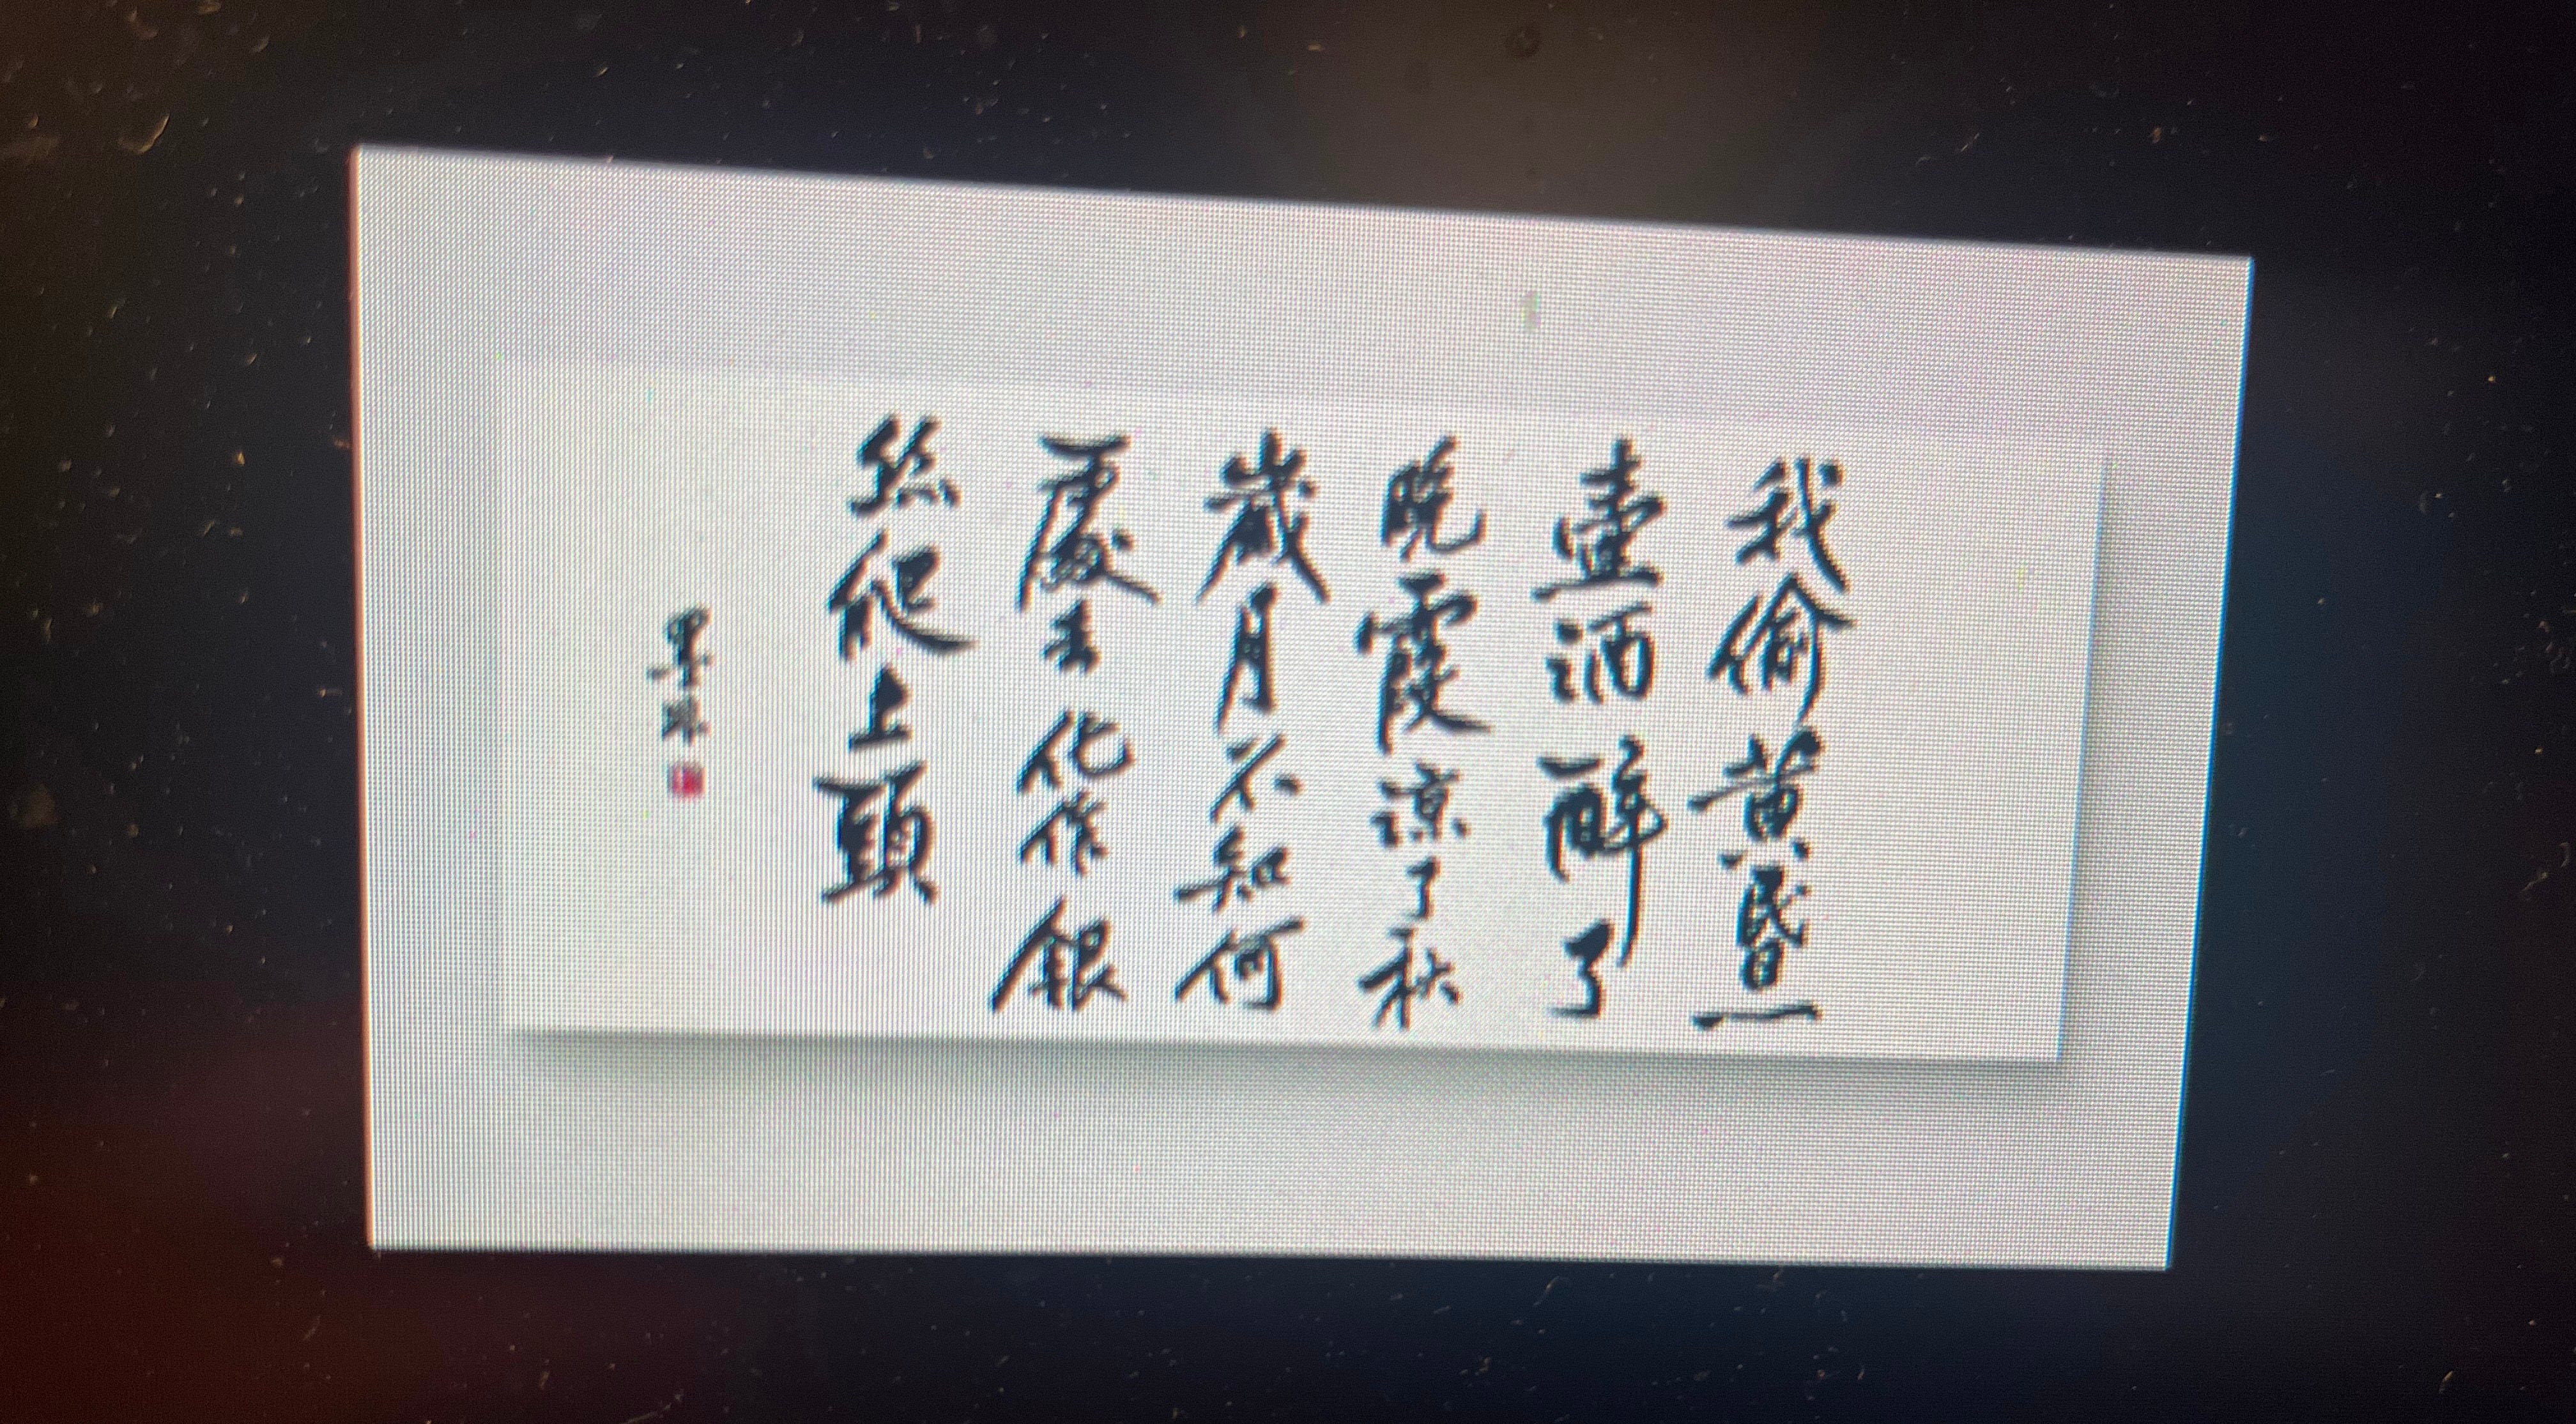 我偷黄昏一
壺酒醉了
晚霞凉了秋
歲月不知何
處去化作銀
絲爬上頭
墨